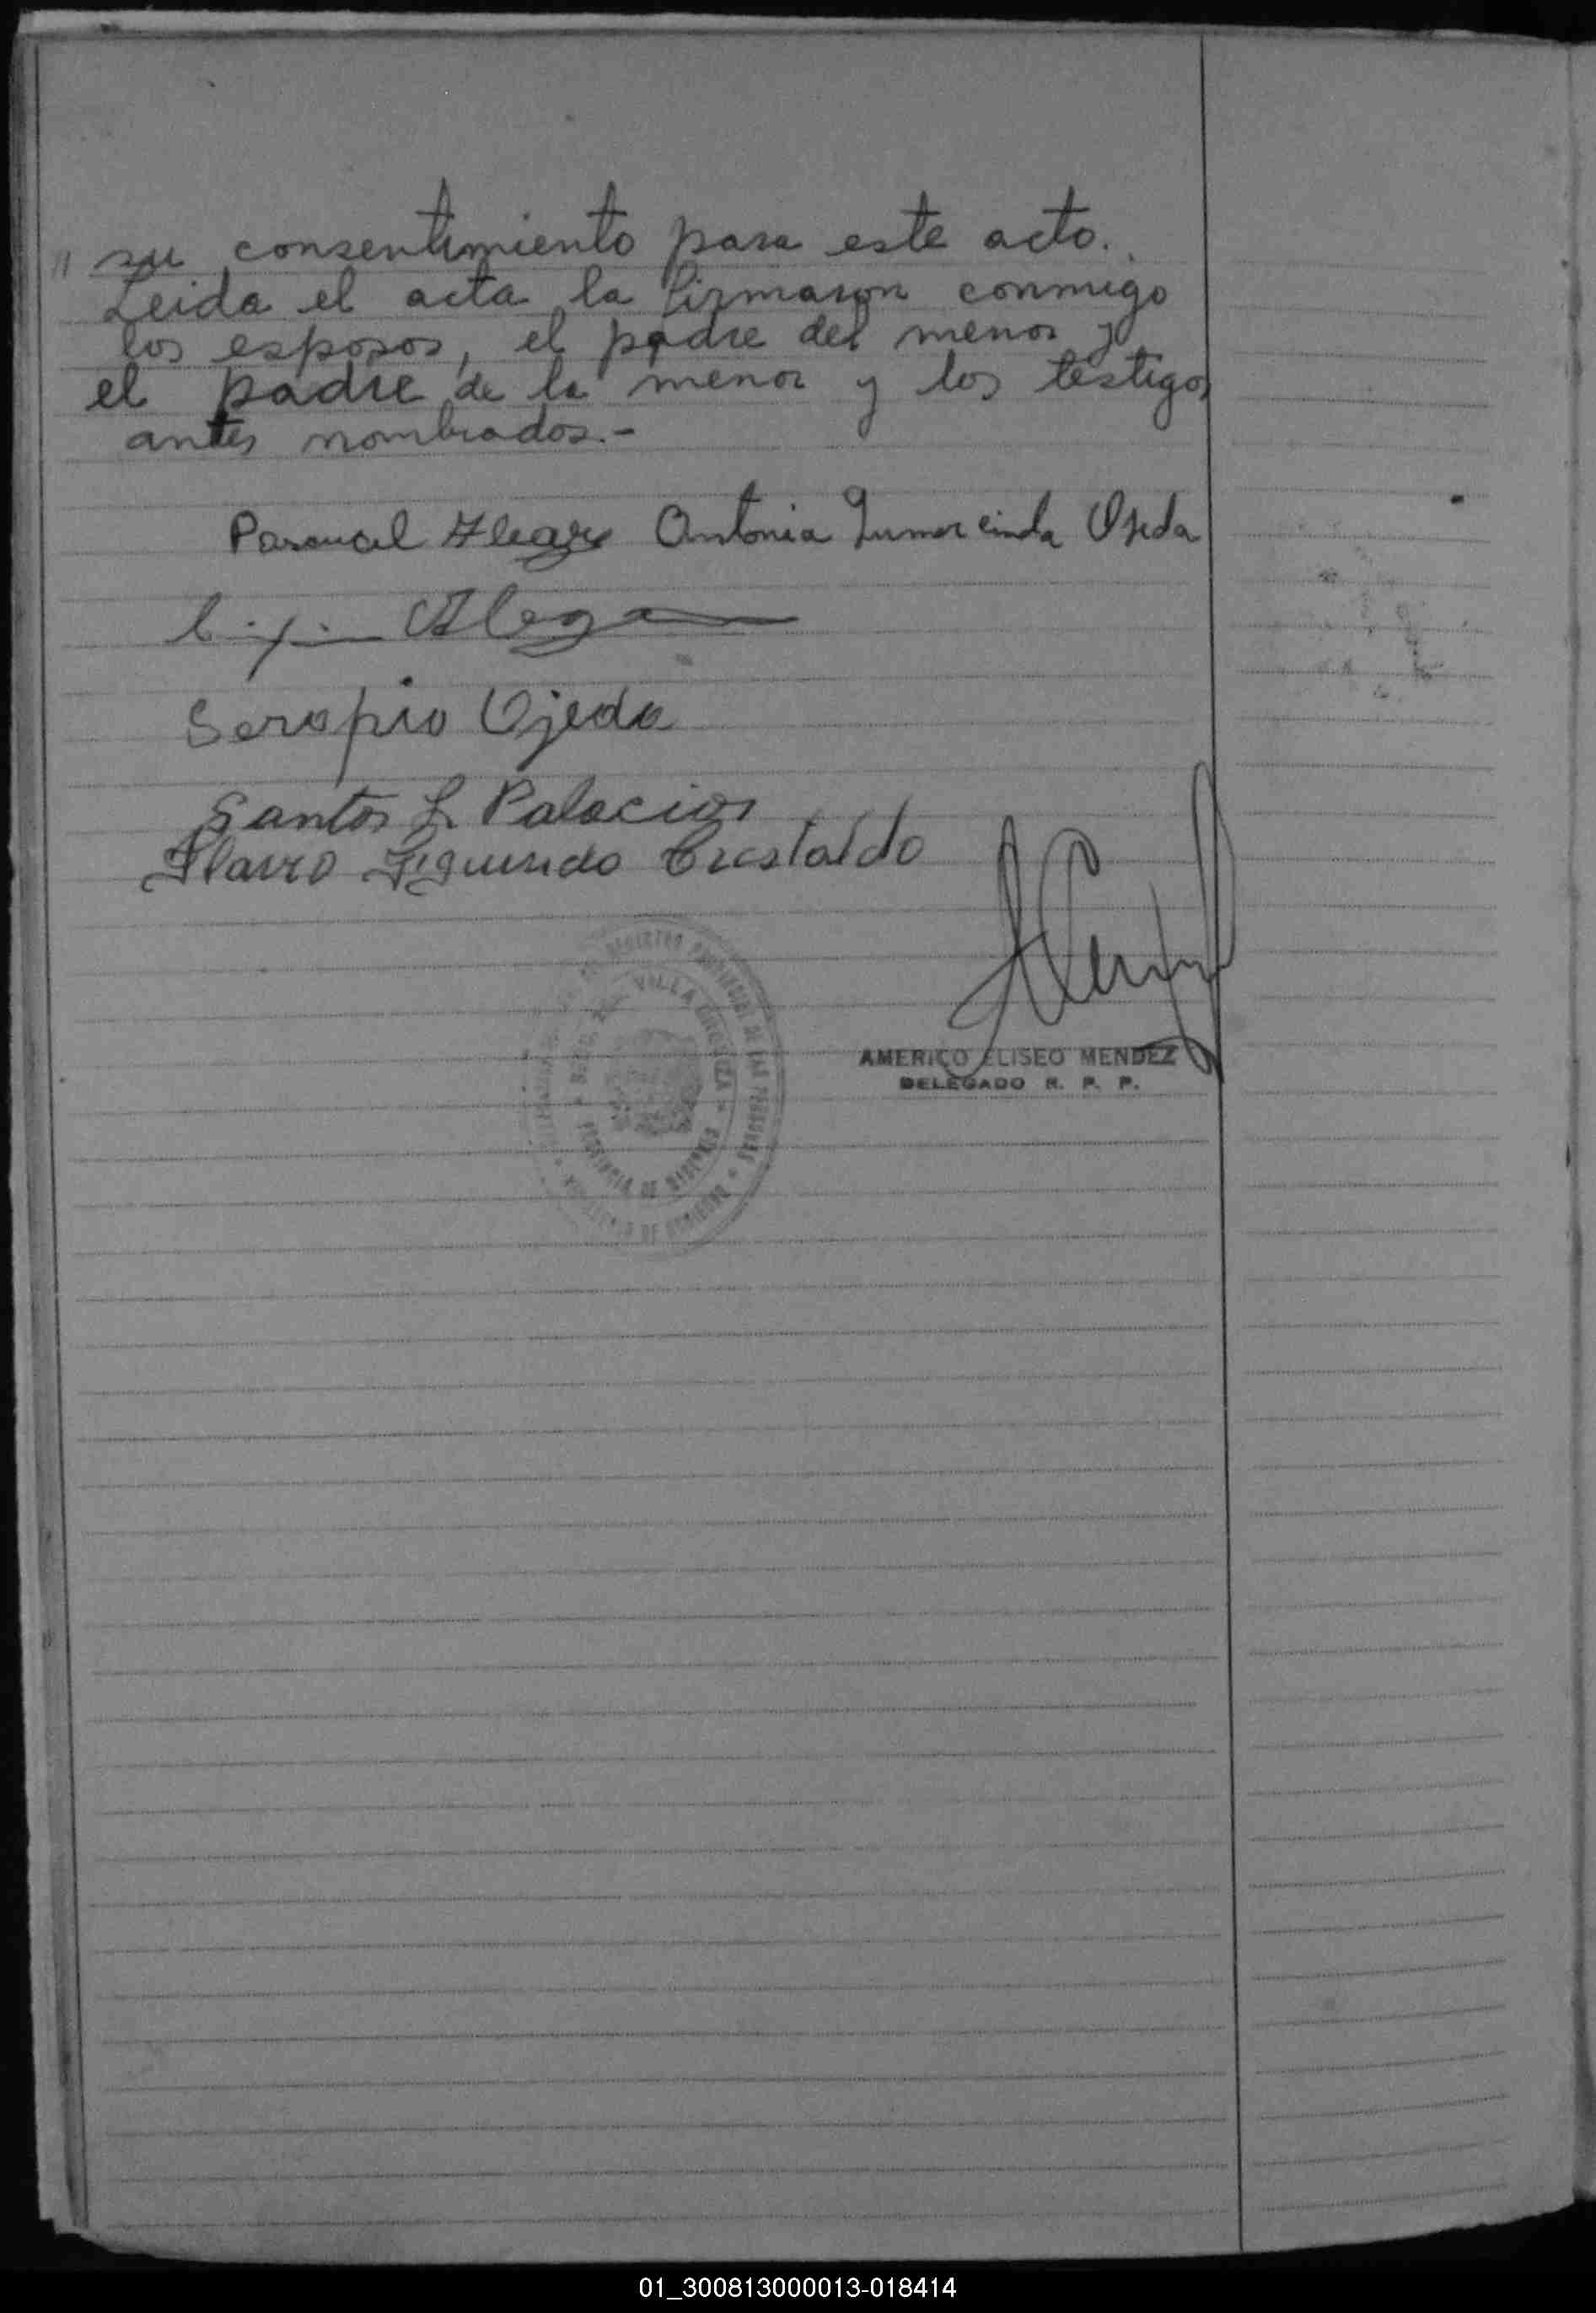 " su consentimiento para este acto.
Leida el acta la firmaron conmigo
los esposos, el padre del menor y
el padre de la menor y los testigos
antes nombrados.-
Pascual Alegre Antonia Gumercinda Ojeda
Serapio Ojeda
Santos L. Palacios
Flavio Segundo Cristaldo
AMERICO ELISEO MENDEZ
DELEGADO R. P. P.
VILLA URQUIZA
PROVINCIA DE MISIONES
DE LAS PERSONAS
01_300813000013-018414